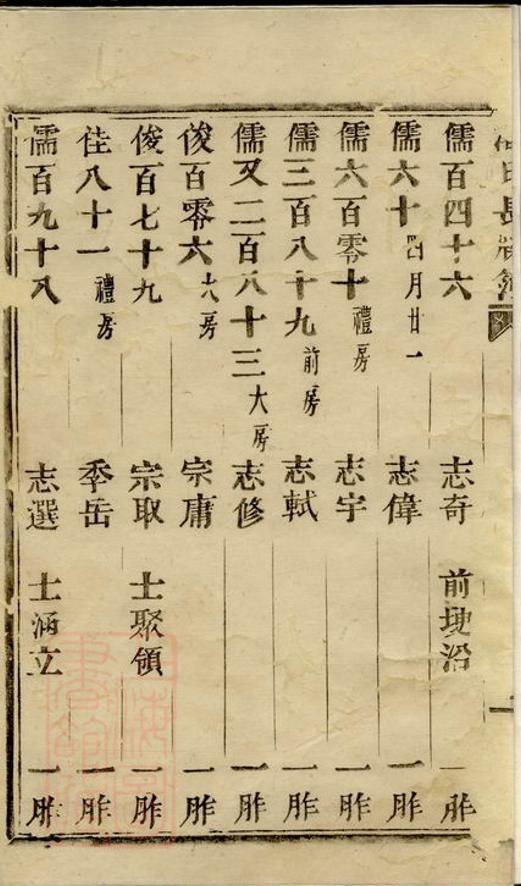 儒百四十六 志奇 前㘰沿 一胙
儒六十 四月廿一 志偉 一胙
儒六百零十 禮房 志宇 一胙
儒三百八十九 前房 志軾 一胙
儒又二百八十三 大房 志修 一胙
俊百零六 大房 宗庸 一胙
俊百七十九 宗取 士聚領 一胙
佳八十一 禮房 季岳 一胙
儒百九十八 志選 士涵立 一胙